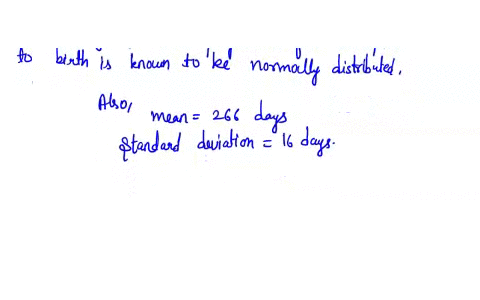 to birth is known to be normally distributed.
Also,
mean = 266 days
standard deviation = 16 days.